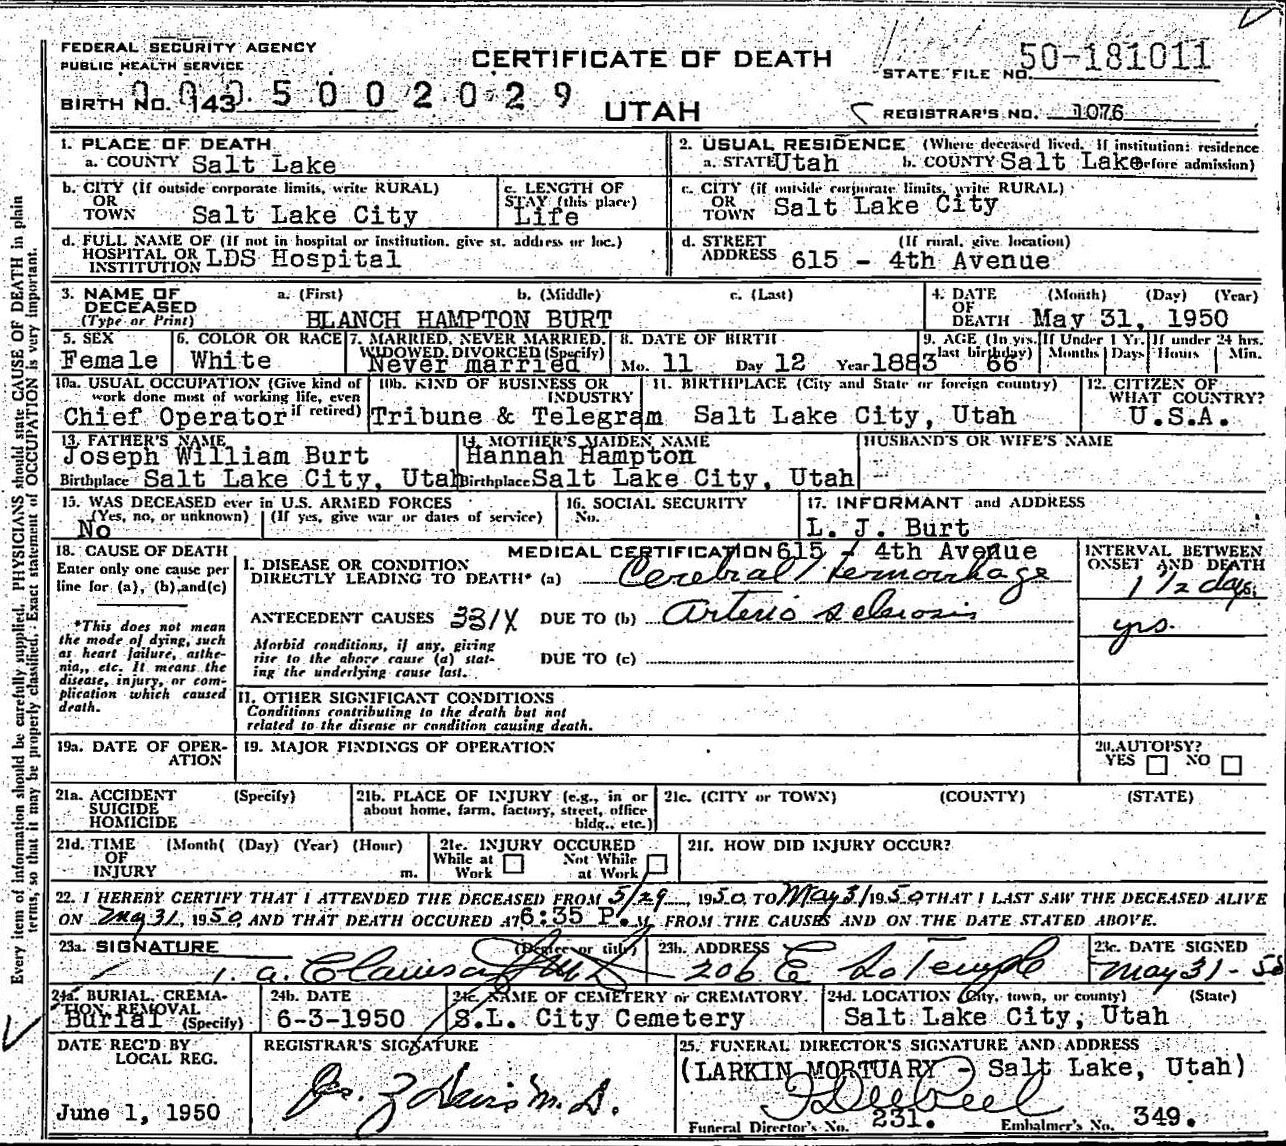 FEDERAL SECURITY AGENCY
PUBLIC HEALTH SERVICE
CERTIFICATE OF DEATH
STATE FILE NO. 50-181011
BIRTH NO. 143
0005002029
UTAH
REGISTRAR'S NO. 1076
Every item of information should be carefully supplied. PHYSICIANS should state CAUSE OF DEATH in plain
terms, so that it may be properly classified. Exact statement of OCCUPATION is very important.
1. PLACE OF DEATH
a. COUNTY Salt Lake
2. USUAL RESIDENCE (Where deceased lived. If institution: residence
a. STATE Utah b. COUNTY Salt Lake before admission)
b. CITY (If outside corporate limits, write RURAL)
OR
TOWN Salt Lake City
c. LENGTH OF
STAY (this place)
Life
c. CITY (if outside corporate limits, write RURAL)
OR
TOWN Salt Lake City
d. FULL NAME OF (If not in hospital or institution, give st. address or loc.)
HOSPITAL OR
INSTITUTION LDS Hospital
d. STREET (If rural, give location)
ADDRESS 615 - 4th Avenue
3. NAME OF a. (First) b. (Middle) c. (Last)
DECEASED
(Type or Print) BLANCH HAMPTON BURT
4. DATE (Month) (Day) (Year)
OF
DEATH May 31, 1950
5. SEX
Female
6. COLOR OR RACE
White
7. MARRIED, NEVER MARRIED,
WIDOWED, DIVORCED (Specify)
Never married
8. DATE OF BIRTH
Mo. 11 Day 12 Year 1883
9. AGE (In yrs.
last birthday) 66
If Under 1 Yr.
Months Days
If under 24 hrs.
Hours Min.
10a. USUAL OCCUPATION (Give kind of
work done most of working life, even
if retired)
Chief Operator
10b. KIND OF BUSINESS OR
INDUSTRY
Tribune & Telegram
11. BIRTHPLACE (City and State or foreign country)
Salt Lake City, Utah
12. CITIZEN OF
WHAT COUNTRY?
U.S.A.
13. FATHER'S NAME
Joseph William Burt
Birthplace Salt Lake City, Utah
14. MOTHER'S MAIDEN NAME
Hannah Hampton
Birthplace Salt Lake City, Utah
HUSBAND'S OR WIFE'S NAME
15. WAS DECEASED ever in U.S. ARMED FORCES
(Yes, no, or unknown) (If yes, give war or dates of service)
No
16. SOCIAL SECURITY
No.
17. INFORMANT and ADDRESS
L. J. Burt
615 - 4th Avenue
18. CAUSE OF DEATH
Enter only one cause per
line for (a), (b), and (c)
*This does not mean
the mode of dying, such
as heart failure, asthe-
nia, etc. It means the
disease, injury, or com-
plication which caused
death.
MEDICAL CERTIFICATION
I. DISEASE OR CONDITION
DIRECTLY LEADING TO DEATH* (a) Cerebral Hemorrhage
ANTECEDENT CAUSES 331X DUE TO (b) Arterio sclerosis
Morbid conditions, if any, giving
rise to the above cause (a) stat-
ing the underlying cause last.
DUE TO (c)
INTERVAL BETWEEN
ONSET AND DEATH
1 1/2 days
yrs.
II. OTHER SIGNIFICANT CONDITIONS
Conditions contributing to the death but not
related to the disease or condition causing death.
19a. DATE OF OPER-
ATION
19. MAJOR FINDINGS OF OPERATION
20. AUTOPSY?
YES NO
21a. ACCIDENT (Specify)
SUICIDE
HOMICIDE
21b. PLACE OF INJURY (e.g., in or
about home, farm, factory, street, office
bldg., etc.)
21c. (CITY or TOWN) (COUNTY) (STATE)
21d. TIME (Month( (Day) (Year) (Hour)
OF
INJURY m.
21e. INJURY OCCURED
While at Work Not While at Work
21f. HOW DID INJURY OCCUR?
22. I HEREBY CERTIFY THAT I ATTENDED THE DECEASED FROM 5/29, 1950 TO May 31 1950 THAT I LAST SAW THE DECEASED ALIVE
ON May 31, 1950, AND THAT DEATH OCCURED AT 6:35 P. M. FROM THE CAUSES AND ON THE DATE STATED ABOVE.
23a. SIGNATURE (Degree or title)
T. A. Clawson Jr MD
23b. ADDRESS
206 E So Temple
23c. DATE SIGNED
May 31-50
24a. BURIAL, CREMA-
TION, REMOVAL
Burial (Specify)
24b. DATE
6-3-1950
24c. NAME OF CEMETERY or CREMATORY
S.L. City Cemetery
24d. LOCATION (City, town, or county) (State)
Salt Lake City, Utah
DATE REC'D BY
LOCAL REG.
June 1, 1950
REGISTRAR'S SIGNATURE
M.D.
25. FUNERAL DIRECTOR'S SIGNATURE AND ADDRESS
(LARKIN MORTUARY - Salt Lake, Utah)
Funeral Director's No. 231. Embalmer's No. 349.